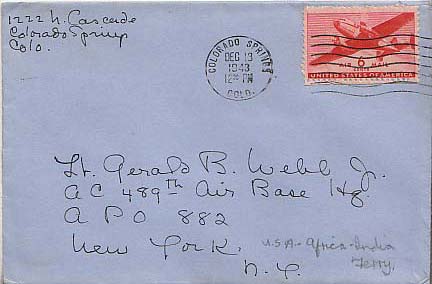 1222 N. Cascade
Colorado Springs
Colo.
COLORADO SPRINGS
DEC 13
1943
12 30 PM
COLO.
AIR MAIL
6
CENTS
UNITED STATES OF AMERICA
Lt. Gerald B. Webb Jr.
AC 489th Air Base Hq.
APO 882
New York.
N.Y.
U.S.A - Africa - India
Ferry.